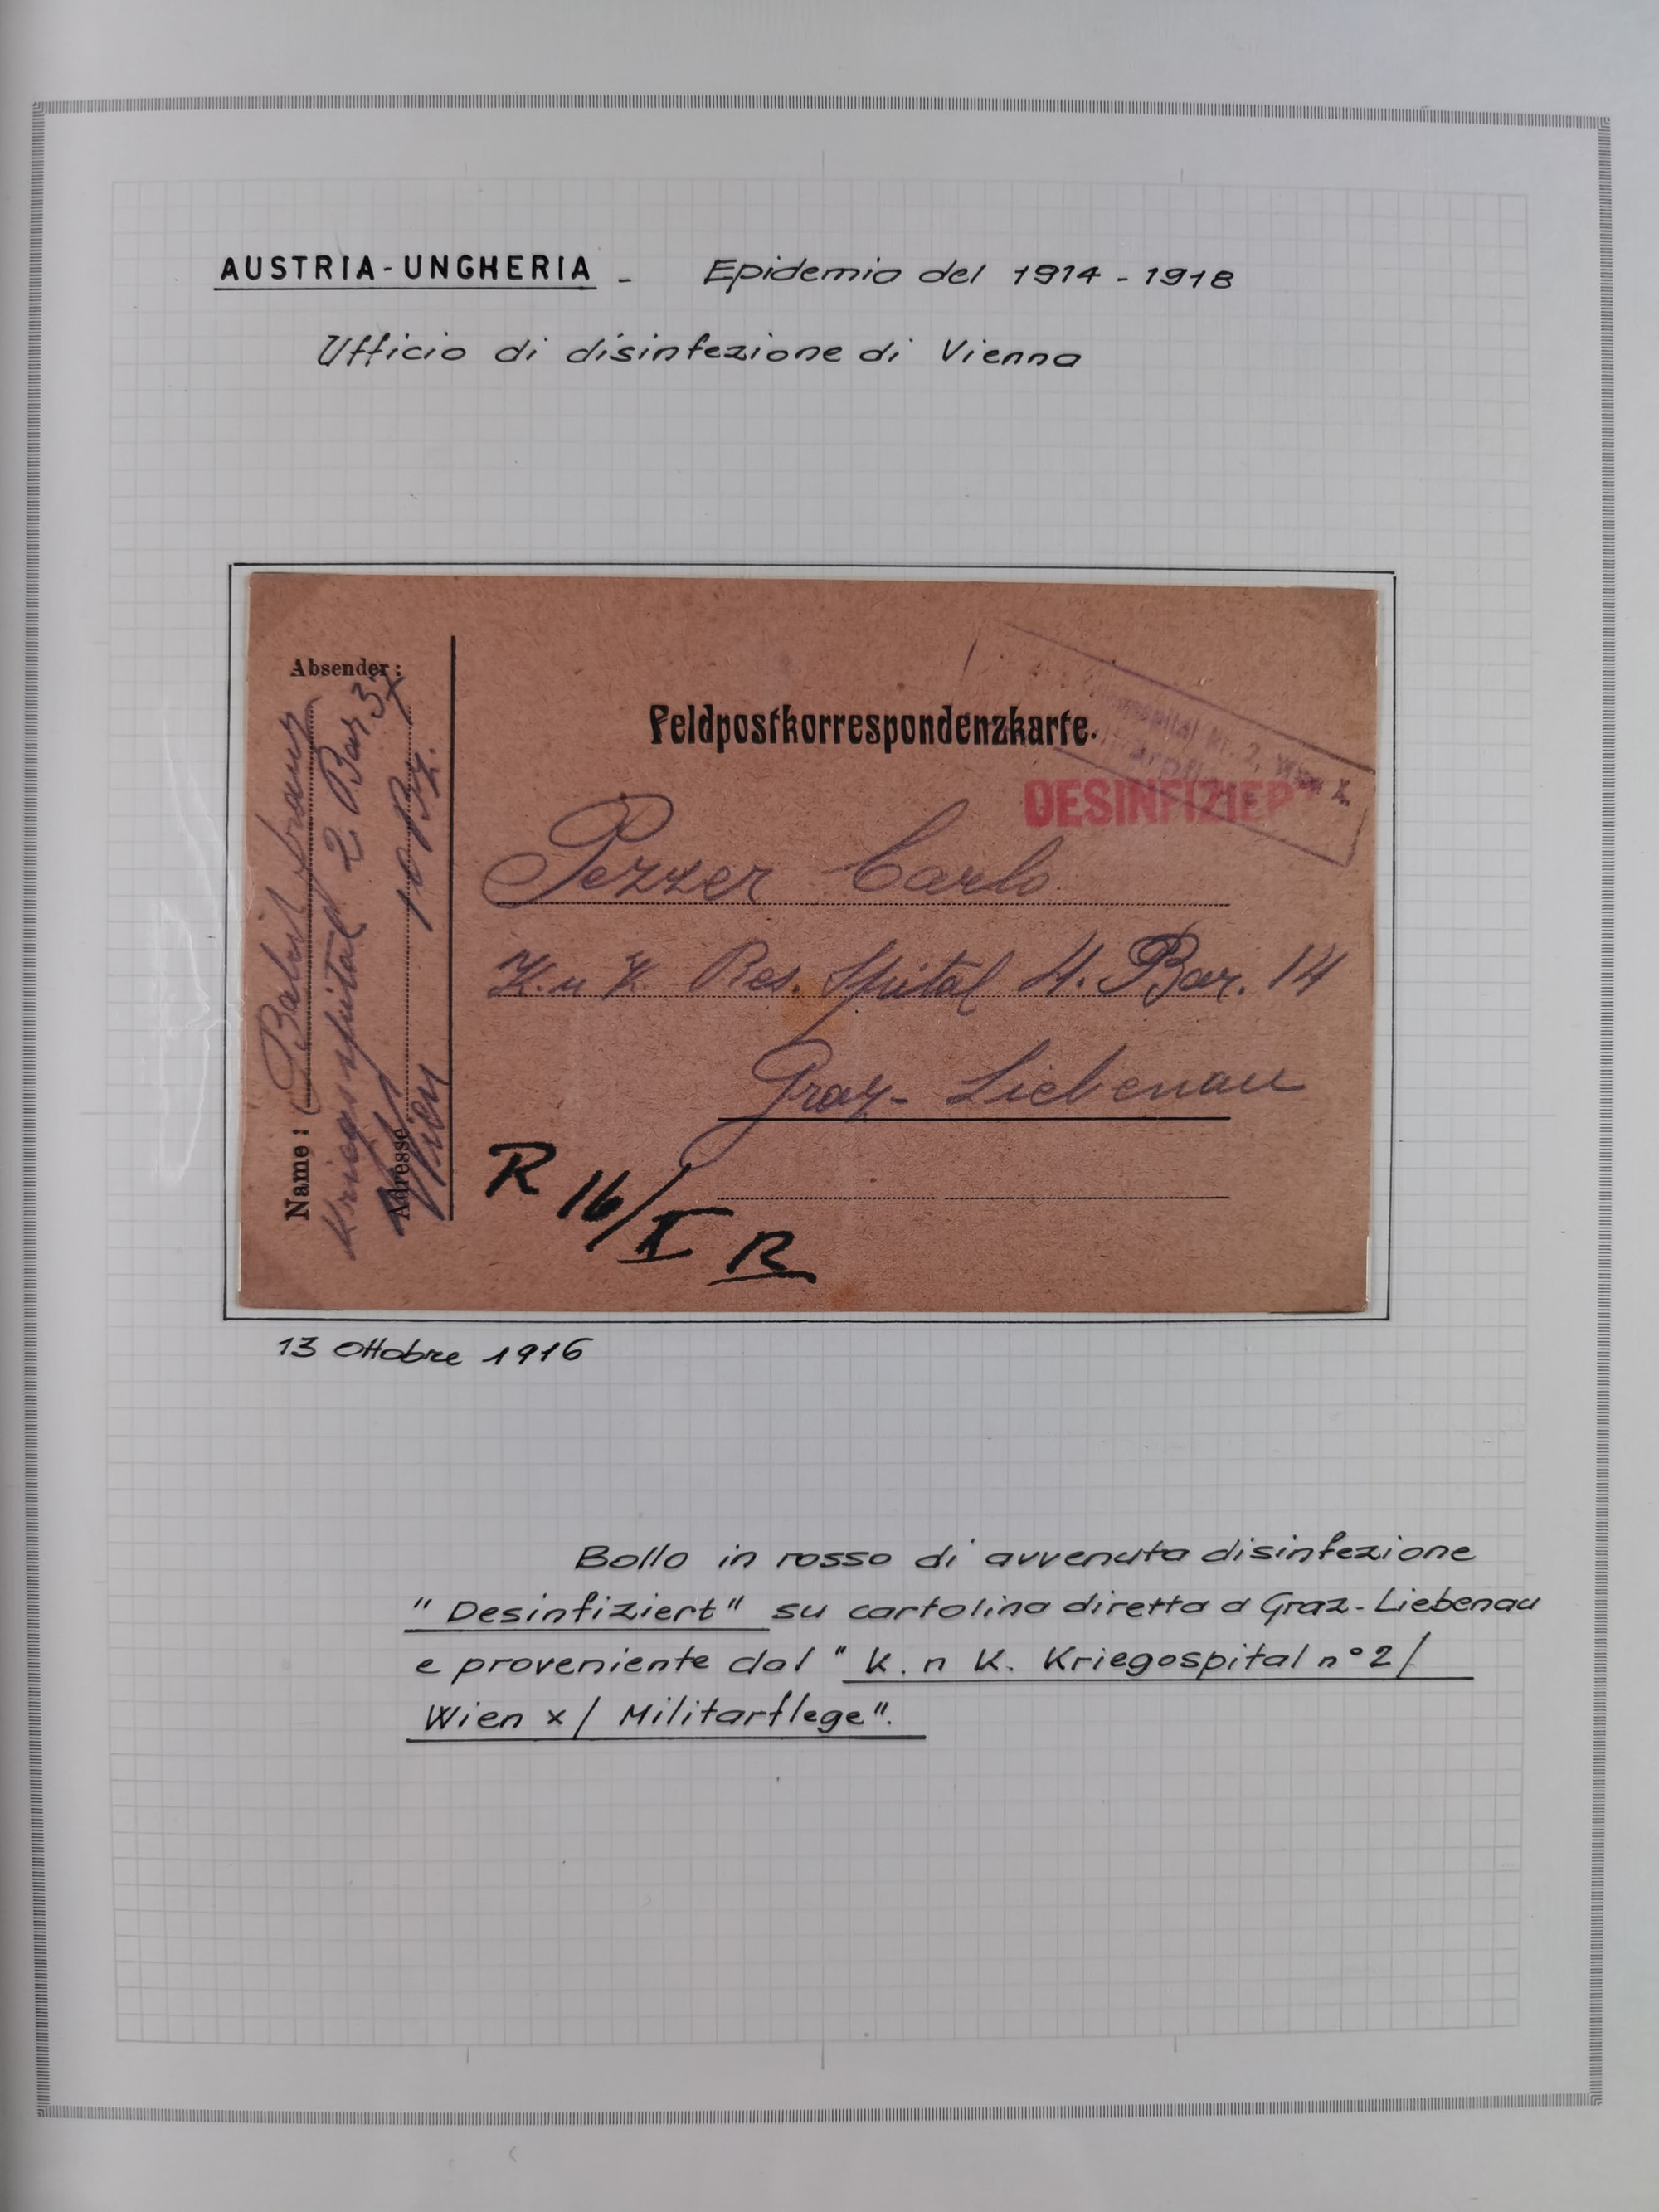 AUSTRIA-UNGHERIA - Epidemia del 1914-1918
Ufficio di disinfezione di Vienna
Absender:
Name:
Kriegsspital 2 Bar 37
Adresse
Wien 10 Bz.
Feldpostkorrespondenzkarte.
spital Nr. 2, Wien X.
DESINFIZIER
Pezzer Carlo
K. u K. Res. Spital 4. Bar. 14
Graz-Liebenau
R 16/X R
13 Ottobre 1916
Bollo in rosso di avvenuta disinfezione
"Desinfiziert" su cartolina diretta a Graz-Liebenau
e proveniente dal "K. n K. Kriegospital n°2/
Wien x/ Militarflege".